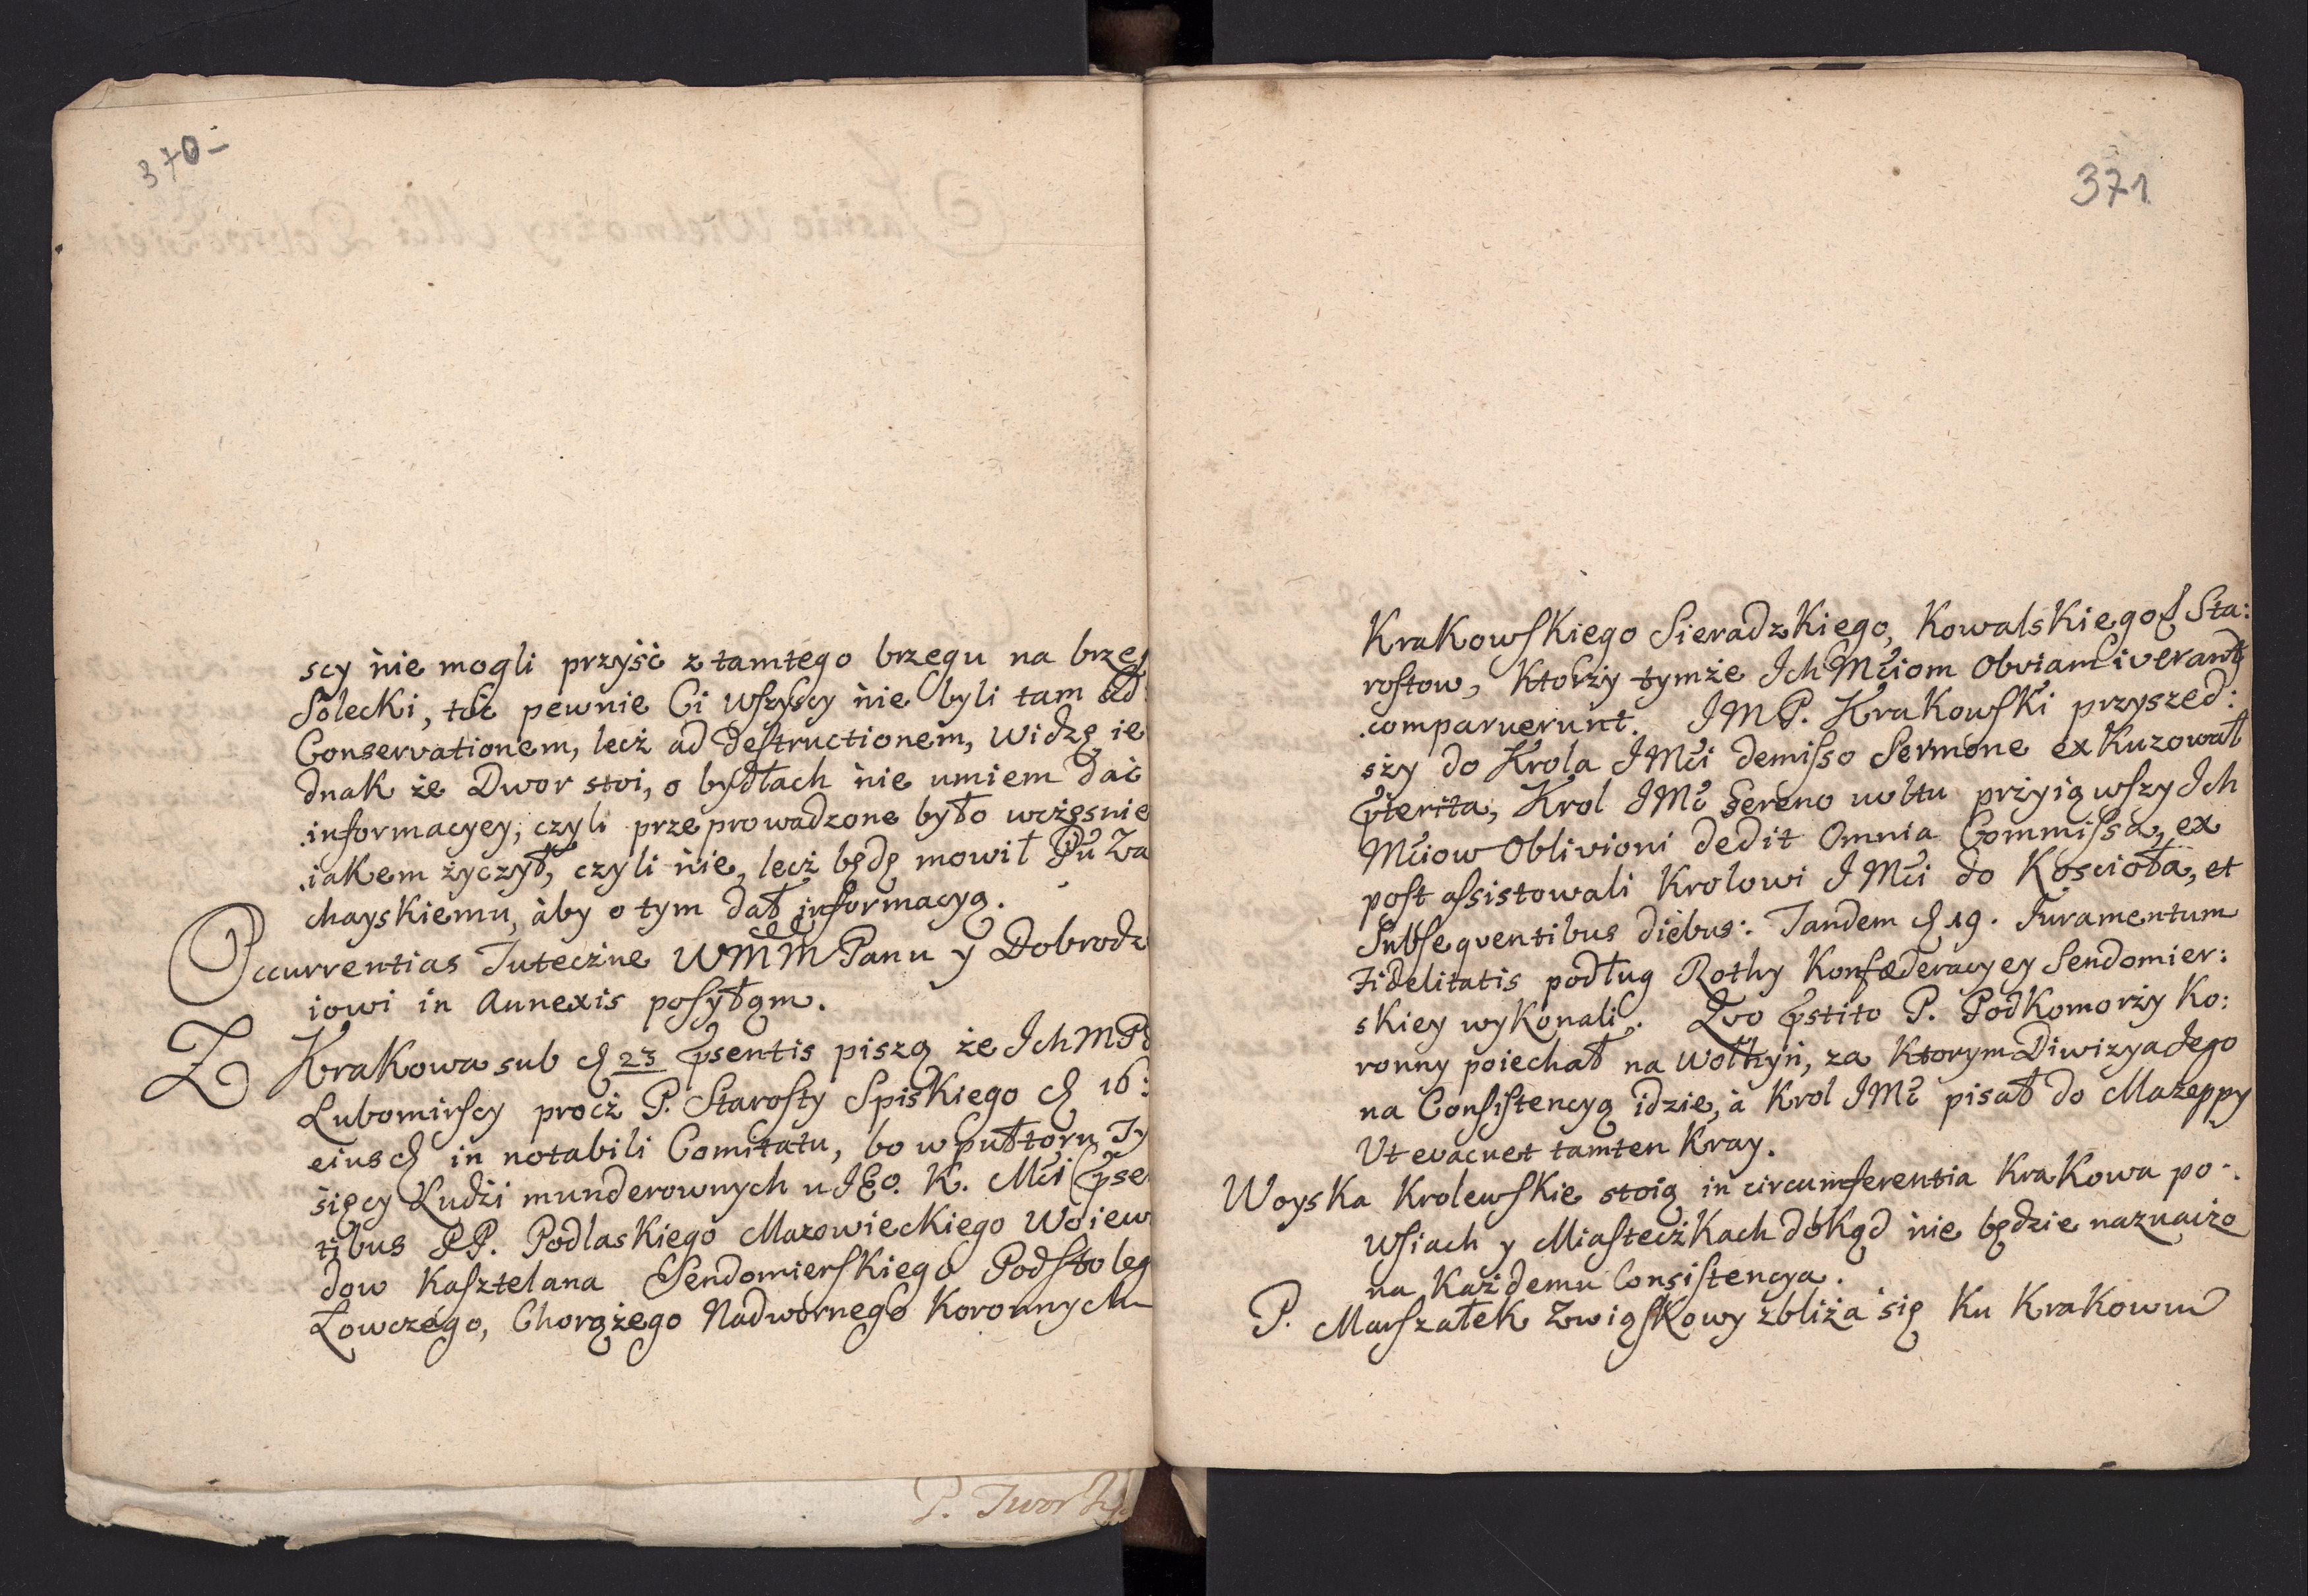 370
scy nie mogli przyść z tamtego brzegu na brzeg
Solecki, toć pewnie Ci wszyscy nie byli tam ad
Conservationem, lecż ad destructionem, widzę ie
dnak że Dwor stoi, o bydłach nie umiem dać
informacyey, czyli przeprowadzone było wcżesnie
iakem życzył, czyli nie, lecż będę mowił Pu Za
chayskiemu, aby o tym dał informacyą.
Occurrentias Tuteczne WMM Panu y Dobrodz
iowi in Annexis posyłam.
Z Krakowa sub d 23 psentis piszą że Ich MP
Lubomirscy procż P. Starosty Spiskiego d 16:
eiusd in notabili Comitatu, bo w pułtoru Ty
sięcy Ludźi munderownych u JEo. K. Mći psen
tibus PP. Podlaskiego Mazowieckiego Woiew
dow Kasztelana Sendomierskiego Podstoleg
Łowczego, Chorążego Nadwornego Koronnych
P. Twor
371
Krakowskiego Sieradzkiego, Kowalskiego Sta:
rostow, Ktorży tymże Ich Mćiom obviam iverant
comparuerunt. JMP. Krakowski przyszed:
sży do Krola JMći demisso Sermone exkuzował
pterita, Krol JMć Sereno vultu prżyiąwszy Ich
Mćiow Oblivioni dedit Omnia Commissa, ex
post assistowali Krolowi JMći do Koscioła, et
Subseqventibus diebus: Tandem d 19. Juramentum
Fidelitatis podług Rothy Konfæderacyey Sendomier:
skiey wykonali. Qvo pstito P. Podkomorży Ko:
ronny poiechał na Wołhyń, za Ktorym Diwizya Jego
na Consistencyą idzie, à Krol JMć pisał do Mazeppy
Ut evacuet tamten Kray.
Woyska Krolewskie stoią in circumferentia Krakowa po
Wsiach y Miastecżkach dokąd nie będzie naznacżo
na Każdemu Consistencya.
P. Marszałek Związkowy zbliża się Ku Krakowu